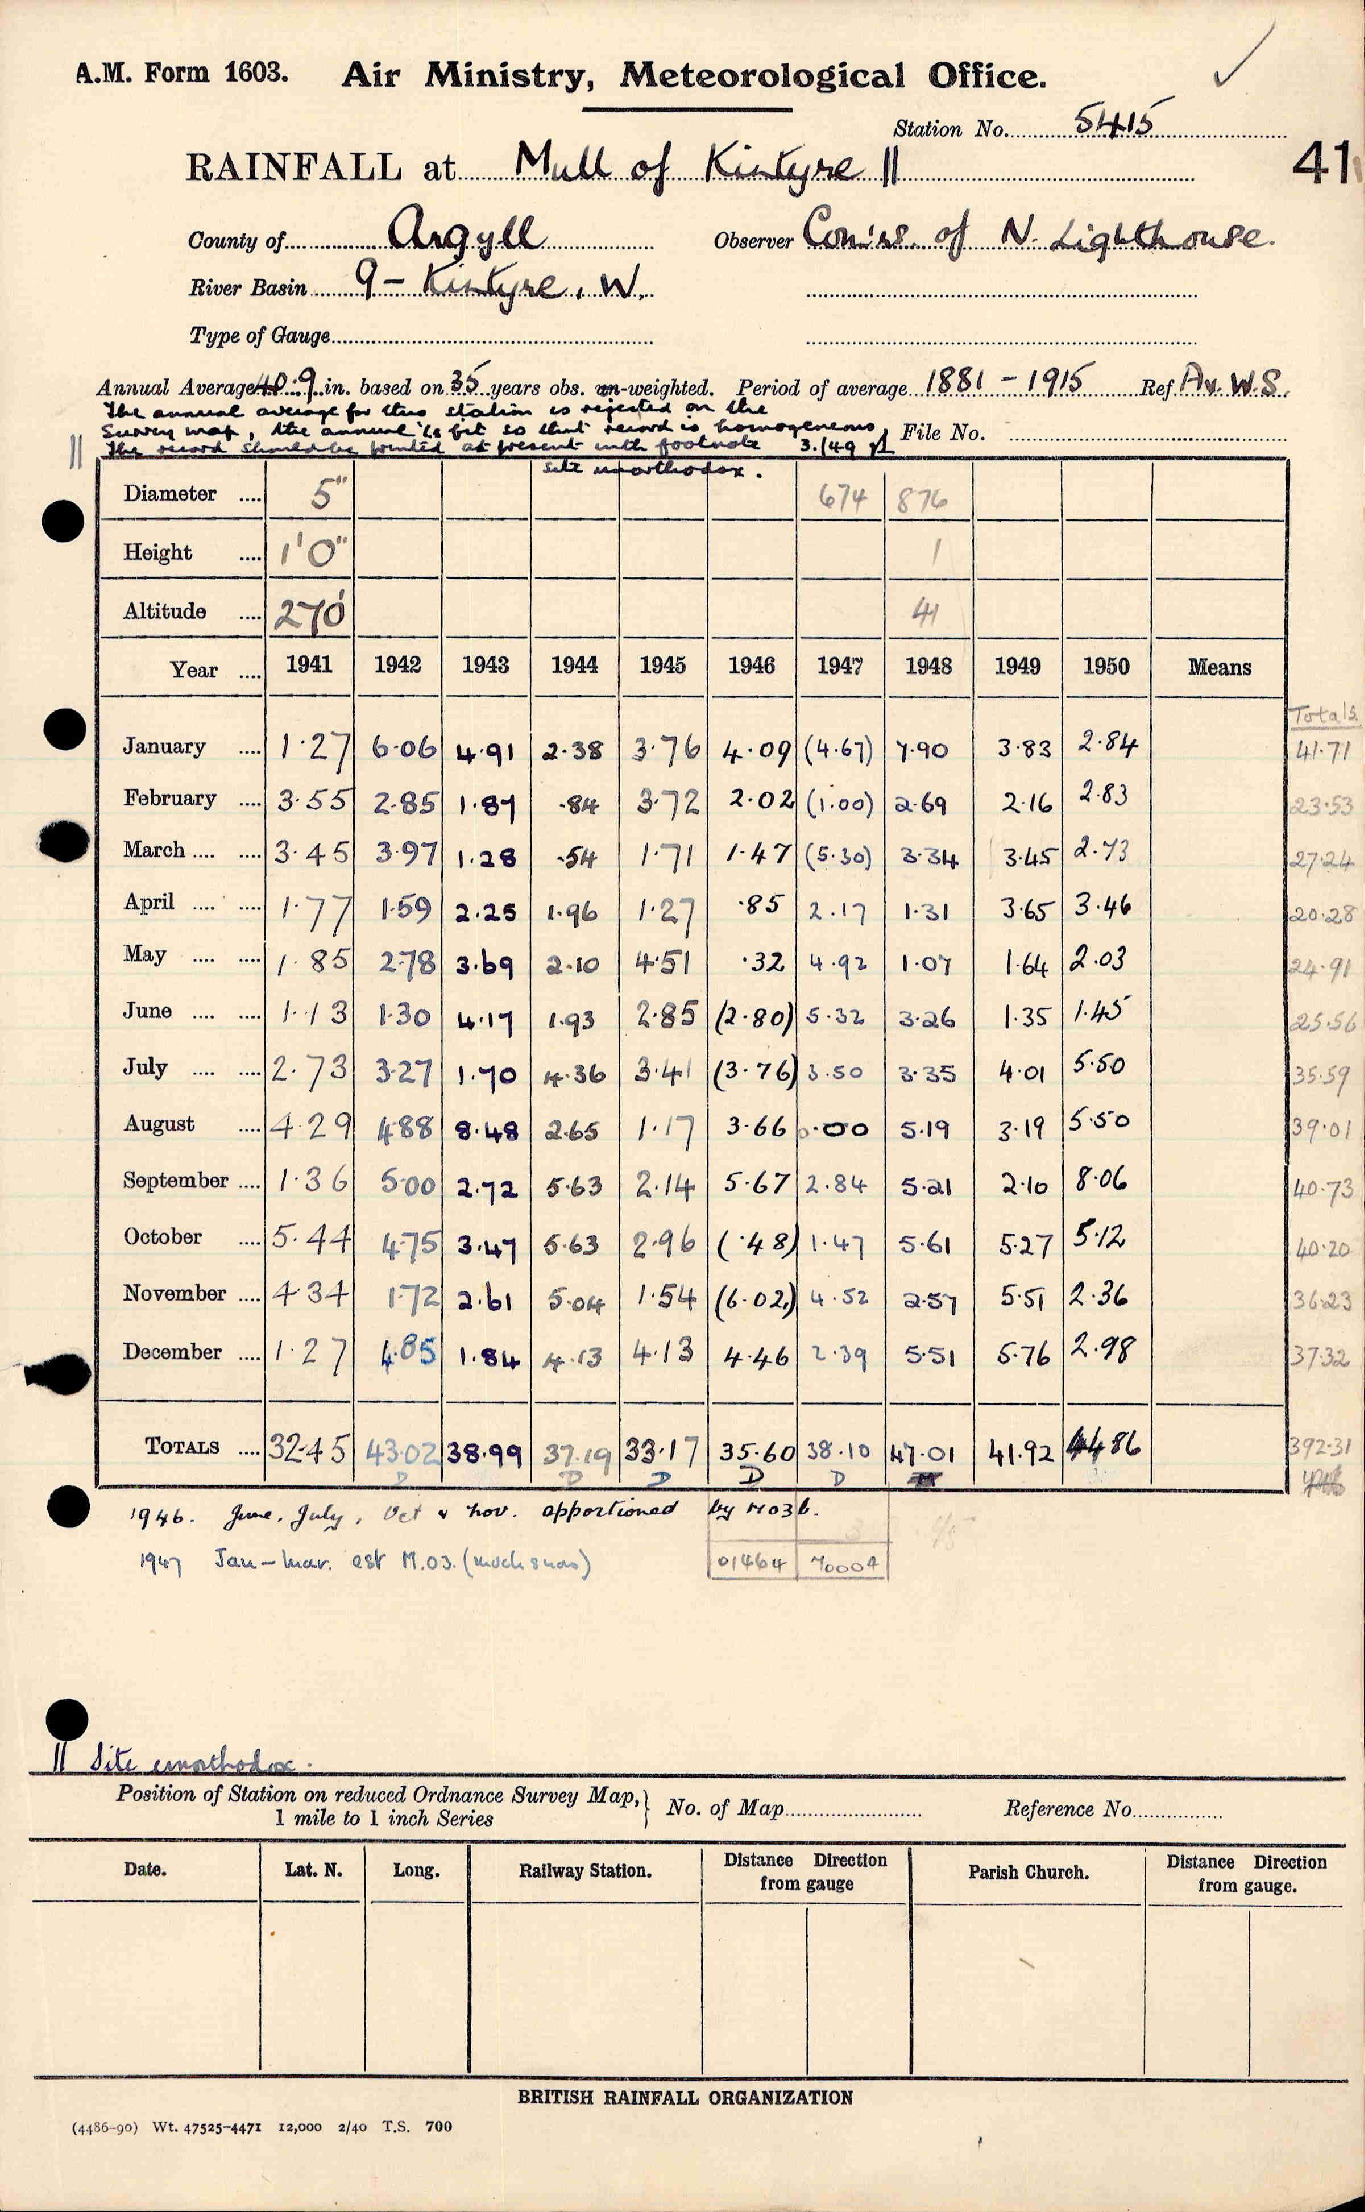 A.M. Form 1603. Air Ministry, Meteorological Office.
Station No. 5415
RAINFALL at Mull of Kintyre ||
41
County of Argyll Observer Com'rs. of N. Lighthouse.
River Basin 9 – Kintyre, W.
Type of Gauge
Annual Average 40.9 in. based on 35 years obs. un-weighted. Period of average 1881 – 1915 Ref Av. W.S.
The annual average for this station is rejected on the
Survey map, the annual %s but so that record is homogeneous, File No.
|| The record should be printed at present with footnote 3./49
site unorthodox.
Diameter .... 5" 674 876
Height .... 1'0" 1
Altitude .... 270' 41
Year .... 1941 1942 1943 1944 1945 1946 1947 1948 1949 1950 Means
Totals
January .... 1.27 6.06 4.91 2.38 3.76 4.09 (4.67) 7.90 3.83 2.84 41.71
February .... 3.55 2.85 1.87 .84 3.72 2.02 (1.00) 2.69 2.16 2.83 23.53
March .... .... 3.45 3.97 1.28 .54 1.71 1.47 (5.30) 3.34 3.45 2.73 27.24
April .... .... 1.77 1.59 2.25 1.96 1.27 .85 2.17 1.31 3.65 3.46 20.28
May .... .... 1.85 2.78 3.69 2.10 4.51 .32 4.92 1.07 1.64 2.03 24.91
June .... .... 1.13 1.30 4.17 1.93 2.85 (2.80) 5.32 3.26 1.35 1.45 25.56
July .... .... 2.73 3.27 1.70 4.36 3.41 (3.76) 3.50 3.35 4.01 5.50 35.59
August .... 4.29 4.88 8.48 2.65 1.17 3.66 0.00 5.19 3.19 5.50 39.01
September .... 1.36 5.00 2.72 5.63 2.14 5.67 2.84 5.21 2.10 8.06 40.73
October .... 5.44 4.75 3.47 5.63 2.96 (.48) 1.47 5.61 5.27 5.12 40.20
November .... 4.34 1.72 2.61 5.04 1.54 (6.02) 4.52 2.57 5.51 2.36 36.23
December .... 1.27 4.85 1.84 4.13 4.13 4.46 2.39 5.51 5.76 2.98 37.32
TOTALS .... 32.45 43.02 38.99 37.19 33.17 35.60 38.10 47.01 41.92 44.86 392.31
D D D D D
1946. June, July, Oct & Nov. apportioned by M03b.
1947 Jan – Mar. est M.03. (much snow)
01464 70004
|| Site unorthodox.
Position of Station on reduced Ordnance Survey Map, } No. of Map Reference No.
1 mile to 1 inch Series
Date. Lat. N. Long. Railway Station. Distance from gauge Direction Parish Church. Distance Direction from gauge.
BRITISH RAINFALL ORGANIZATION
(4486-90) Wt. 47525-4471 12,000 2/40 T.S. 700